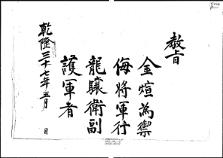 教旨
金煊為禦
侮將軍行
龍驤衛副
護軍者
乾隆三十七年五月 日